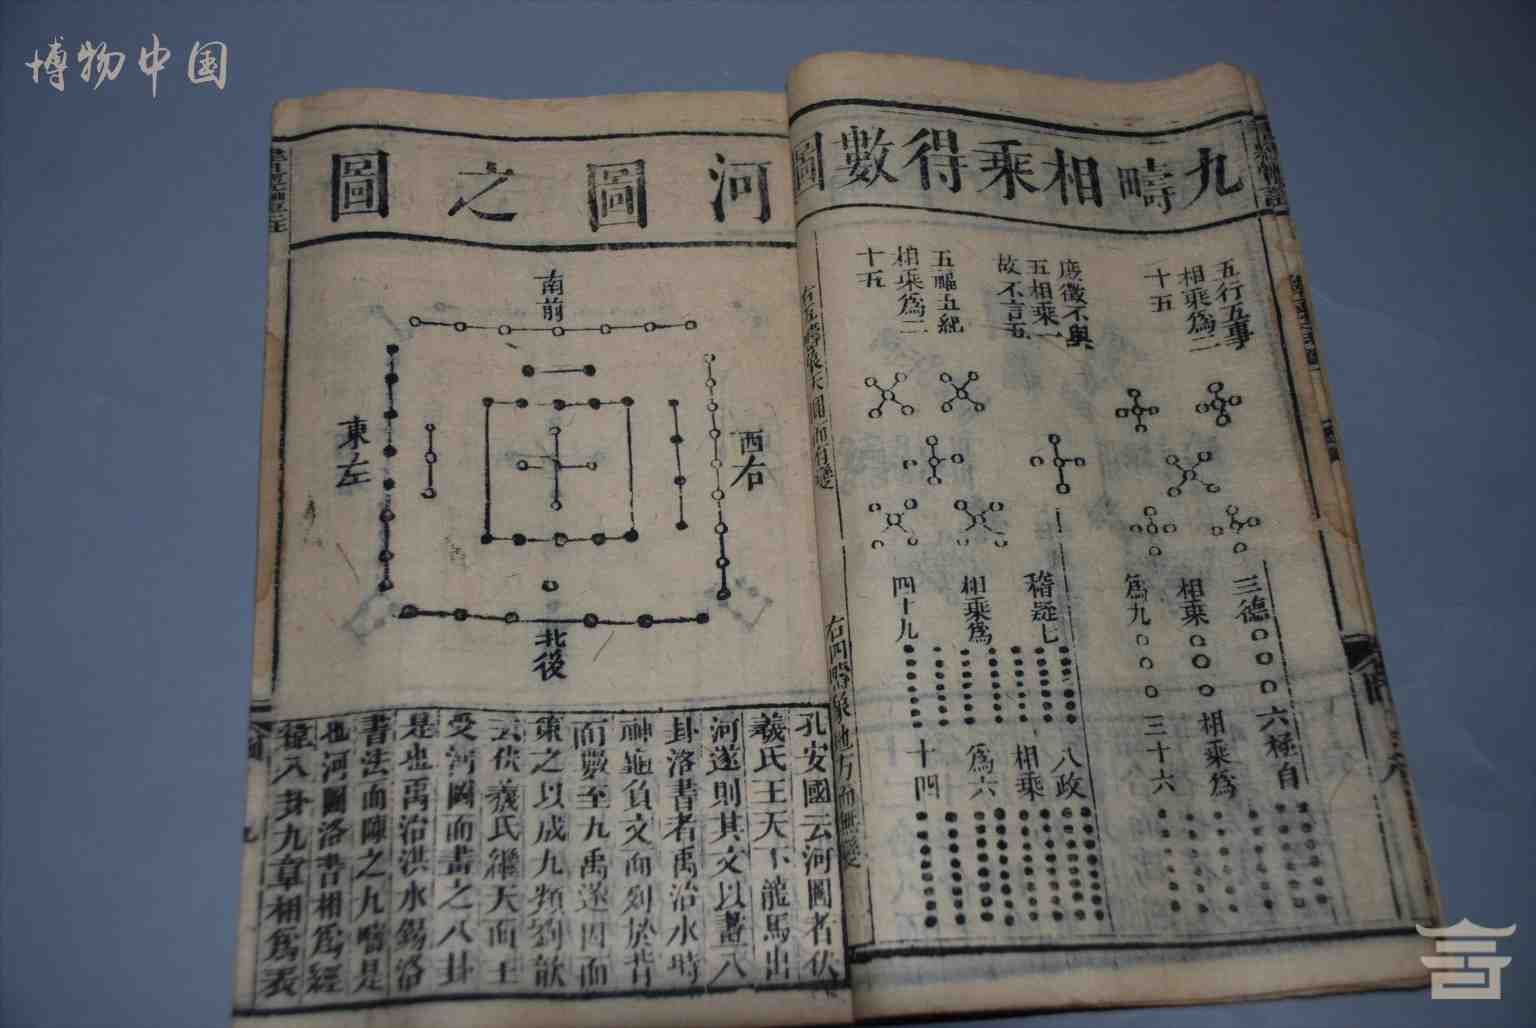 博物中国
九疇相乘得數圖
五行五事
相乘爲二
十五
庶徵不與
五相乘一
故不言五
五福五紀
相乘爲二
十五
三德
相乘
爲九
稽疑七
相乘爲
四十九
六極自
相乘爲
三十六
八政
相乘
爲六
十四
右五疇象天圓而有變
右四疇象地方而無變
河圖之圖
南前
東左
西右
北後
孔安國云河圖者伏
羲氏王天下龍馬出
河遂則其文以畫八
卦洛書者禹治水時
神龜負文而列於背
而數至九禹遂因而
第之以成九類劉歆
云伏羲氏繼天而王
受河圖而畫之八卦
是也禹治洪水錫洛
書法而陳之九疇是
也河圖洛書相爲經
緯八卦九章相爲表